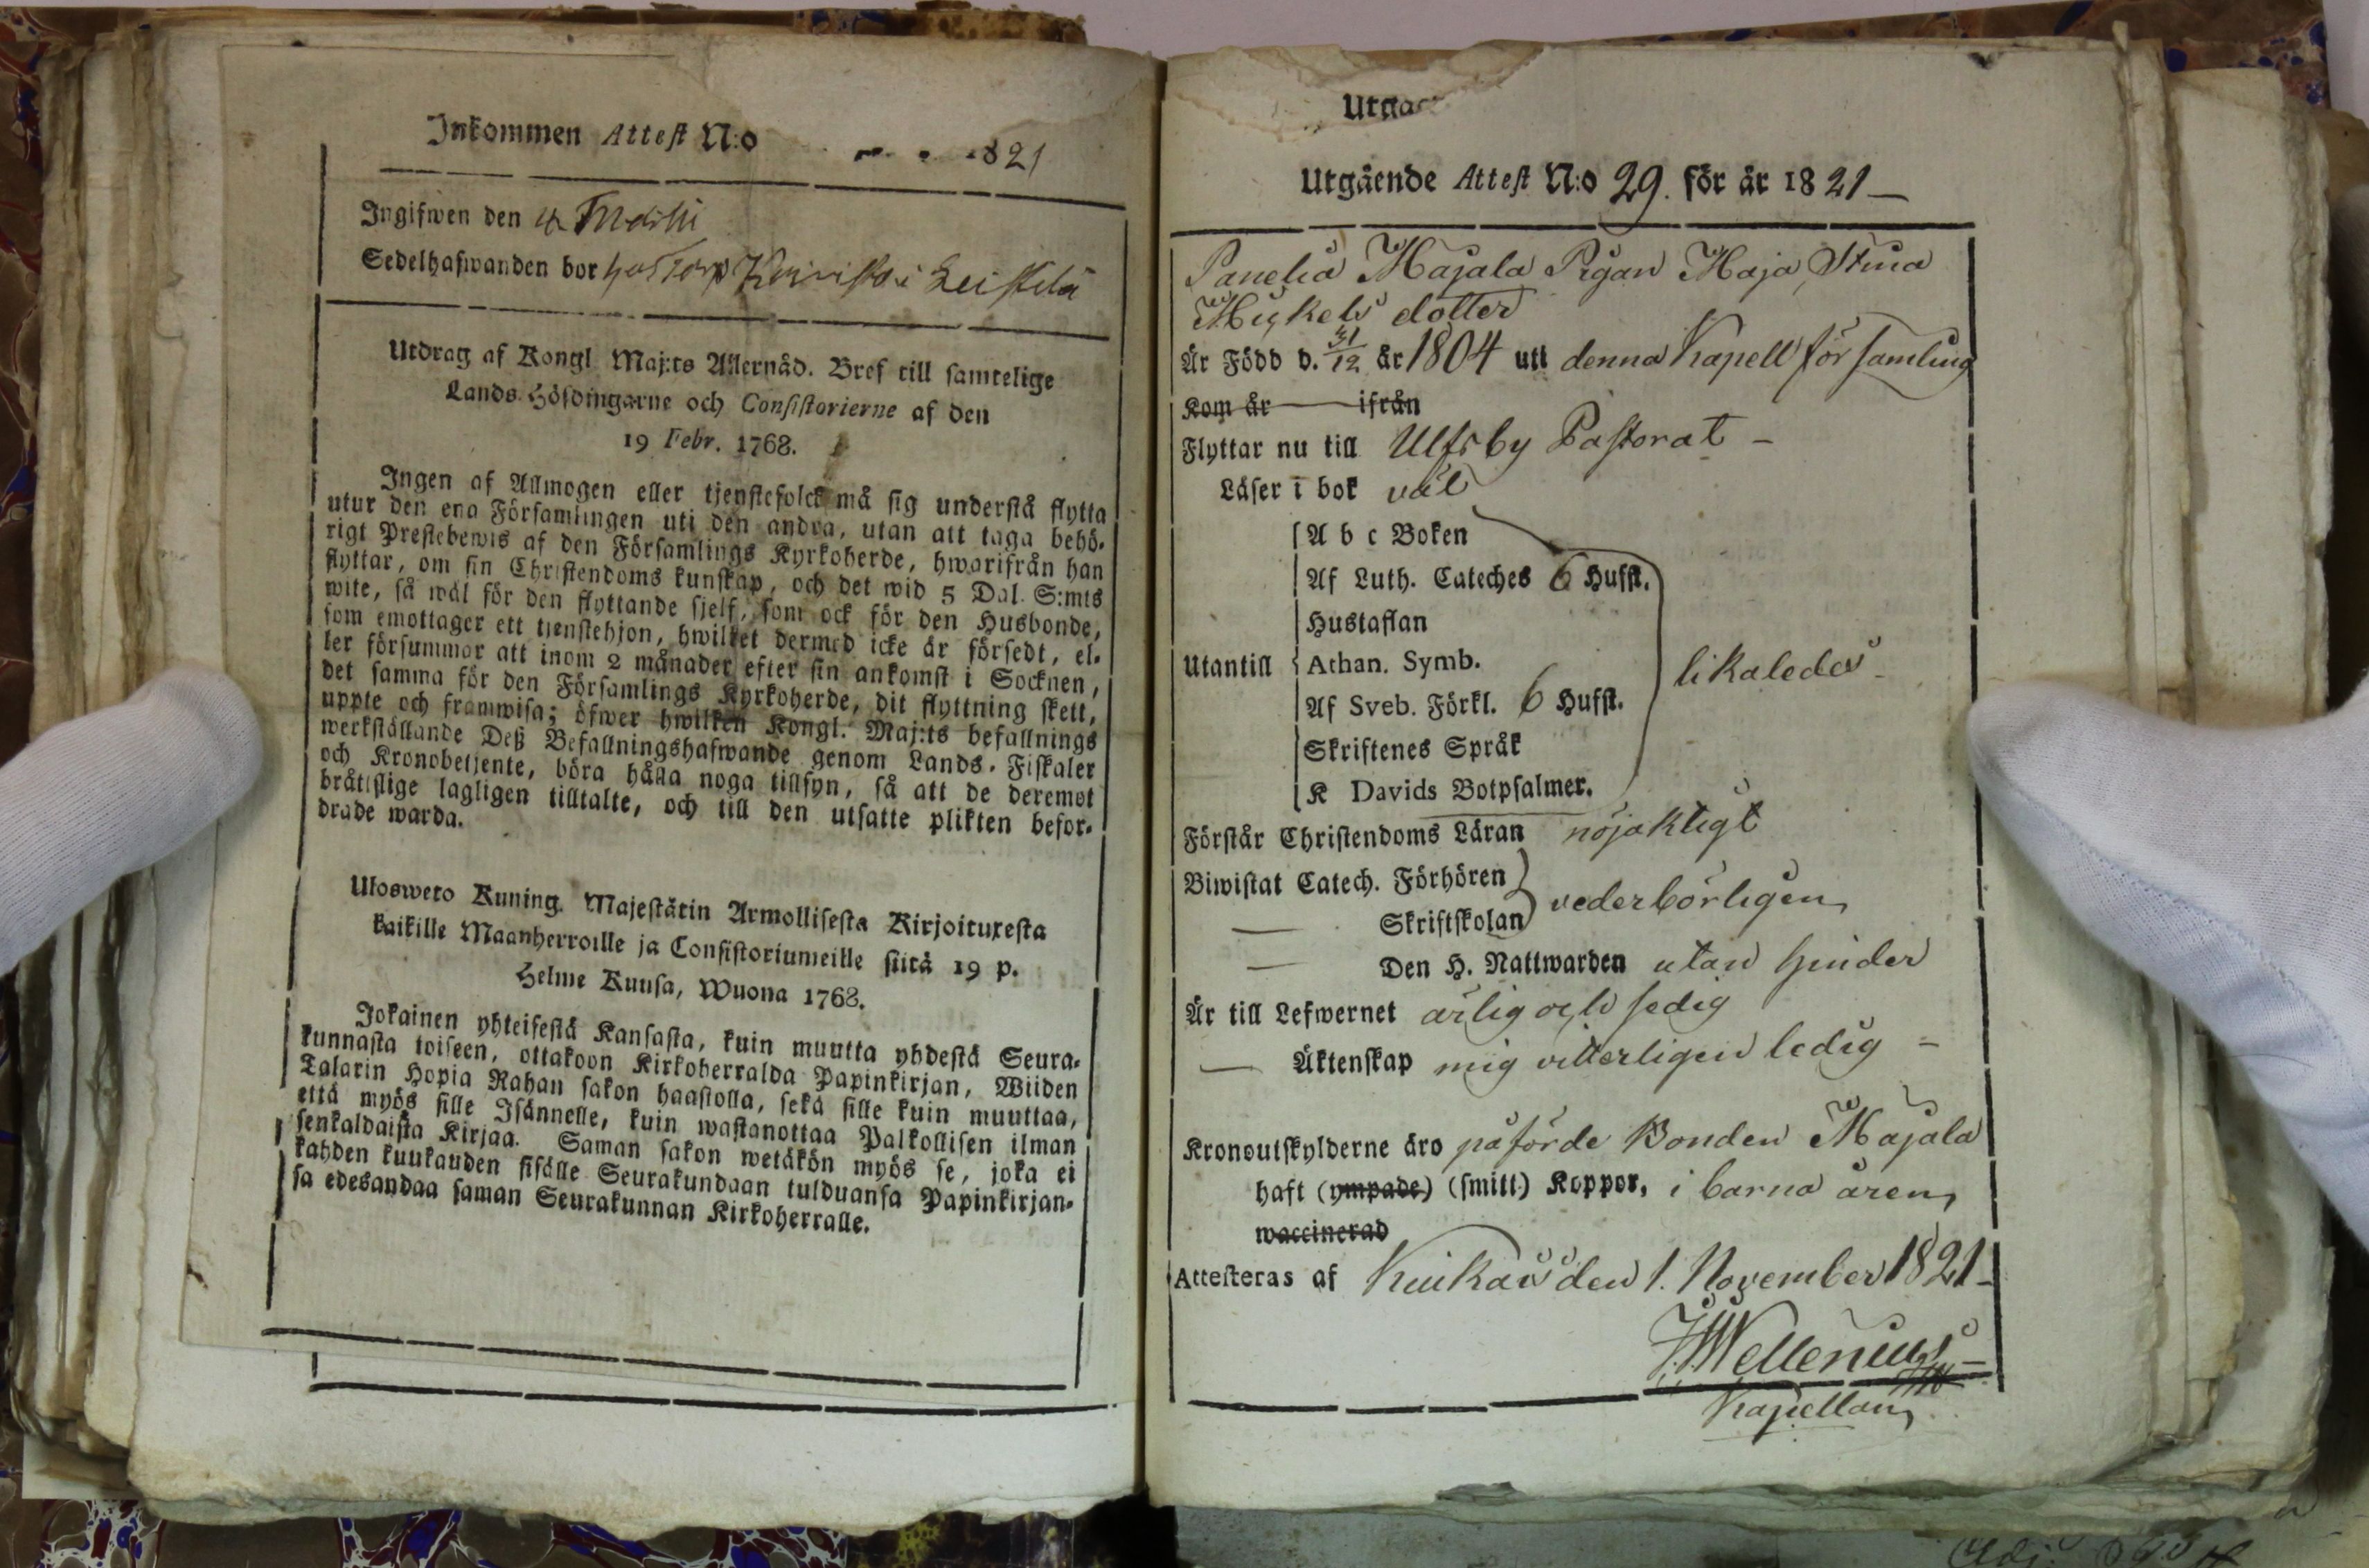 Inkommen Attest N:o 1821
Ingifwen den
Sedelhafwanden bor hos Torp
Utdrag af Kongl Maj:ts Allernåd. Bref till samtelige
Lands-Höfdingarne och Consistorierne af den
19 Febr. 1768.
Ingen af Allmogen eller tjenstefolck må sig understå flytta
utur den ena Församlingen uti den andra, utan att taga behö-
rigt Prestebewis af den Församlings Kyrkoherde, hwarifrån han
flyttar, om sin Christendoms kunskap, och det wid 5 Dal. S:mts
wite, så wäl för den flyttande sjelf, som ock för den Husbonde,
som emottager ett tjenstehjon, hwilket dermed icke är försedt, el-
ler försummar att inom 2 månader efter sin ankomst i Socknen,
det samma för den Församlings Kyrkoherde, dit flyttning skett,
uppte och framwisa; öfwer hwilken Kongl. Maj:ts befallnings
werkställande Deß Befallningshafwande genom Lands-Fiskaler
och Kronobetjente, böra hålla noga tillsyn, så att de deremot
bråtslige lagligen tilltalte, och till den utsatte plikten befor-
drade warda.
Ulosweto Kuning. Majestätin Armollisesta Kirjoituxesta
kaikille Maanherroille ja Consistoriumeille siitä 19 p.
Helme Kuusa, Wuona 1768.
Jokainen yhteisestä Kansasta, kuin muutta yhdestä Seura-
kunnasta toiseen, ottakoon Kirkoherralda Papinkirjan, Wiiden
Talarin Hopia Rahan sakon haastolla, sekä sille kuin muuttaa,
että myös sille Isännelle, kuin wastanottaa Palkollisen ilman
senkaldaista Kirjaa. Saman sakon wetäkön myös se, joka ei
kahden kuukauden sisälle Seurakundaan tulduansa Papinkirjan-
sa edesandaa saman Seurakunnan Kirkoherralle.
Utgående Attest N:o 29. för år 1821
Panelia Majala Pigan Maja Stina
Mickels dotter
Är Född d. 31/12 år 1804 uti denna Kapell församling
Kom år ifrån
Flyttar nu till Ulfsby Pastorat
Läser i bok väl
A b c Boken
Af Luth. Cateches 6 Hufst.
Hustaflan
Utantill Athan. Symb. likaledes
Af Sveb. Förkl. 6 Hufst.
Skriftenes Språk
K Davids Botpsalmer.
Förstår Christendoms Läran nöjaktigt
Biwistat Catech. Förhören
Skriftskolan vederbörligen
Den H. Nattwarden utan hinder
Är till Lefwernet ärlig och sedig
Äktenskap mig vitterligen ledig
Kronoutskylderne äro påförde Bonden Majala
haft (ympade) (smitt) Koppor, i barna åren
waccinerad
Attesteras af Kiukais den 1. November 1821
Wellenius
Kapellan